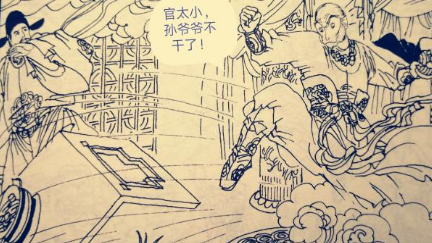 官太小，
孙爷爷不
干了！